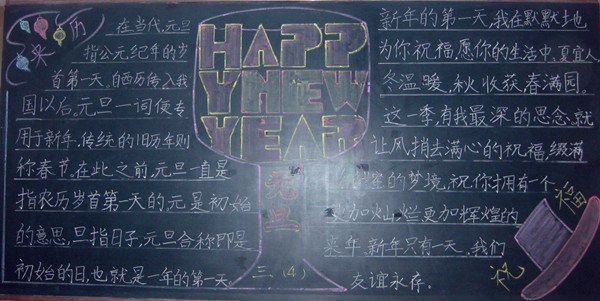 历
来
在当代,元旦
指公元纪年的岁
首第一天。自西历传入我
国以后,元旦一词便专
用于新年,传统的旧历年则
称春节。在此之前,元旦一直是
指农历岁首第一天的元是初始
的意思,旦指日子,元旦合称即是
初始的日,也就是一年的第一天。
HAPP
YNEW
YEAR
元旦
三(4)
新年的第一天,我在默默地
为你祝福,愿你的生活中,夏宜人,
冬温暖,秋收获,春满园。
这一季,有我最深的思念,就
让风捎去满心的祝福,缀满
的梦境,祝你拥有一个
更加灿烂更加辉煌的
来年,新年只有一天,我们
友谊永存。
福
祝